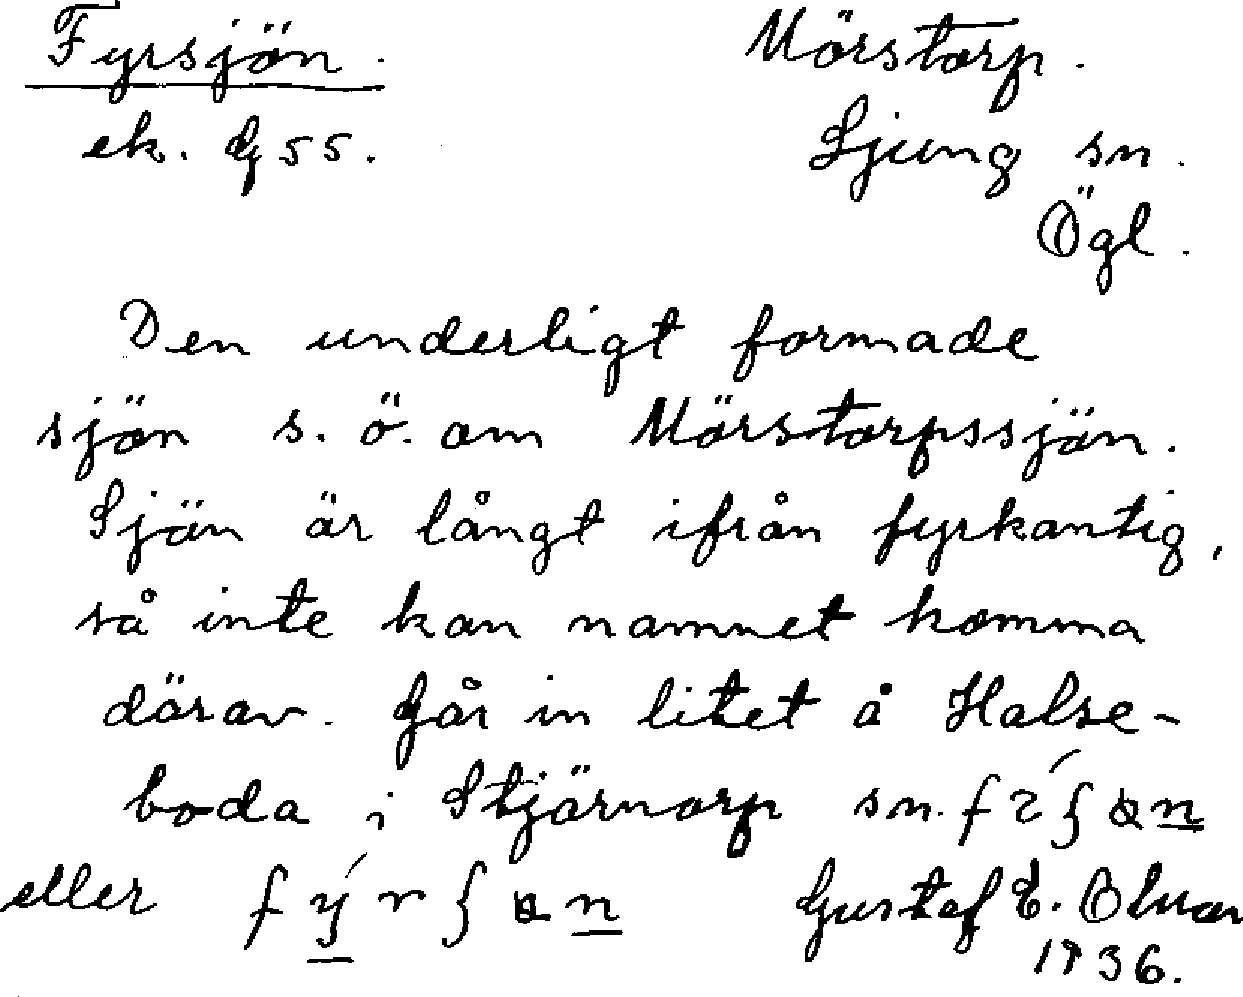 Fyrsjön.
Mörstorp.
ek. G 55.
Ljung sn.
Ögl.
Den underligt formade
sjön s. ö. om Mörstorpssjön.
Sjön är långt ifrån fyrkantig,
så inte kan namnet komma
därav. Går in litet å Halse-
boda i Stjärnorp sn.
eller
Gustaf E.
1936.